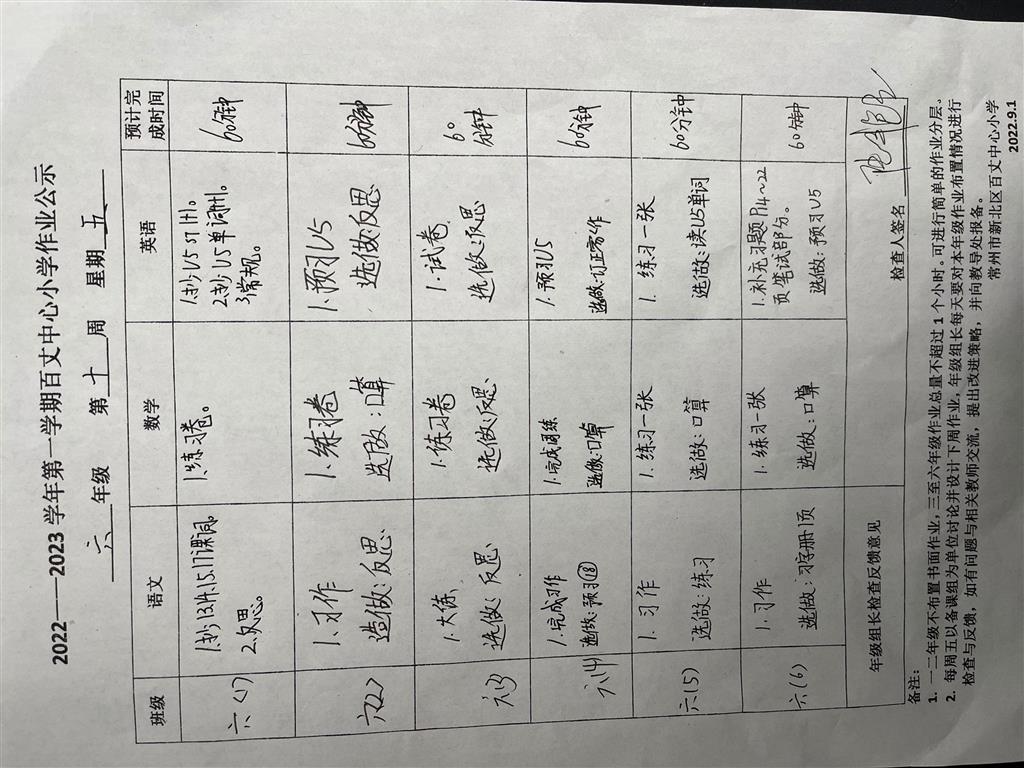 2022——2023 学年第一学期百丈中心小学作业公示
六 年级 第 十 周 星期 五
班级 语文 数学 英语 预计完成时间
六（1） 1.抄13.14.15.17课词。 1.练习卷。 1.抄U5 订1。 60分钟
2.反思。 2.抄U5单词1。
3.常规。
六（2） 1.习作 1.练习卷 1.预习U5 60分钟
选做：反思 选做：口算 选做：反思
六（3） 1.大练 1.练习卷 1.试卷 60分钟
选做：反思 选做：反思 选做：反思
六（4） 1.完成习作 1.完成周练 1.预习U5 60分钟
选做：预习⑱ 选做：口算 选做：订正
六（5） 1.习作 1.练习一张 1.练习一张 60分钟
选做：练习 选做：口算 选做：读U5单词
六（6） 1.习作 1.练习一张 1.补充习题P14～22 60分钟
选做：习字册1页 选做：口算 页笔试部分。
选做：预习U5
年级组长检查反馈意见 检查人签名
备注：
1. 一二年级不布置书面作业，三至六年级作业总量不超过 1 个小时。可进行简单的作业分层。
2. 每周五以备课组为单位讨论并设计下周作业，年级组长每天要对本年级作业布置情况进行
检查与反馈，如有问题与相关教师交流，提出改进策略，并向教导处报备。
常州市新北区百丈中心小学
2022.9.1